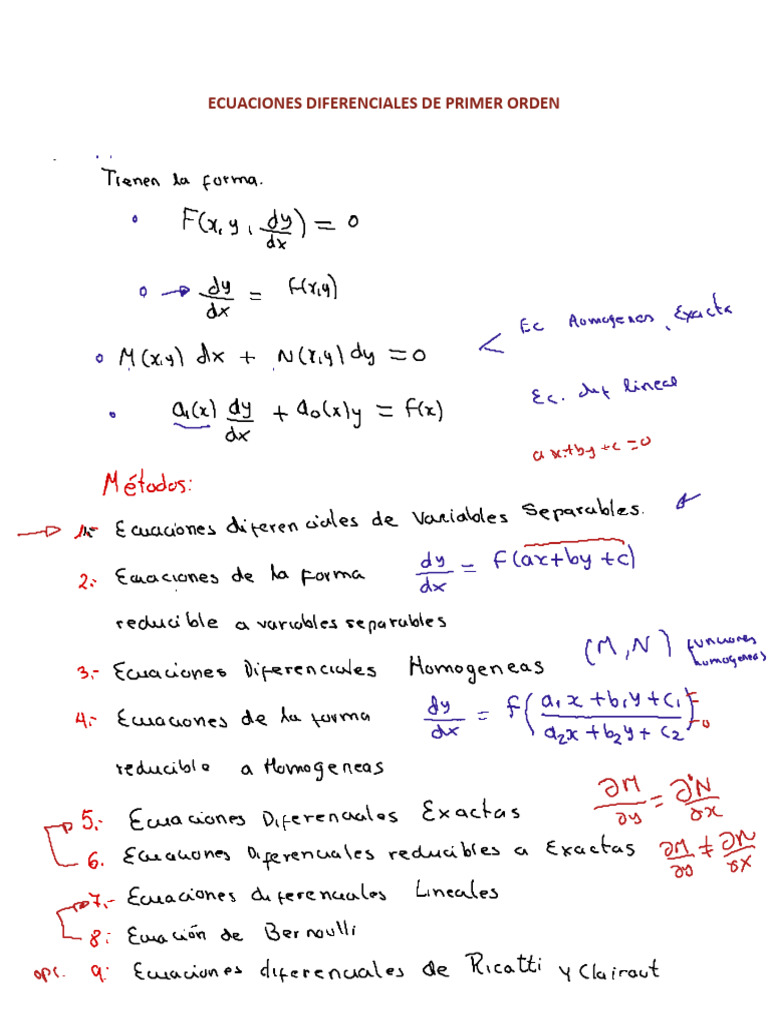 ECUACIONES DIFERENCIALES DE PRIMER ORDEN
Tienen la forma.
F(x, y, dy/dx) = 0
→ dy/dx = f(x,y)
M(x,y) dx + N(x,y) dy = 0 < Ec Homogenea, Exacta
a₁(x) dy/dx + a₀(x)y = f(x) Ec. dif lineal
ax+by+c=0
Métodos:
→ 1.- Ecuaciones diferenciales de Variables Separables.
2.- Ecuaciones de la forma dy/dx = f(ax+by+c)
reducible a variables separables
3.- Ecuaciones Diferenciales Homogeneas (M,N) funciones homogeneas
4.- Ecuaciones de la forma dy/dx = f(a₁x+b₁y+c₁/a₂x+b₂y+c₂)
reducible a Homogeneas
5.- Ecuaciones Diferenciales Exactas ∂M/∂y = ∂N/∂x
6. Ecuaciones Diferenciales reducibles a Exactas ∂M/∂y ≠ ∂N/∂x
7.- Ecuaciones diferenciales Lineales
8: Ecuación de Bernoulli
opc. 9: Ecuaciones diferenciales de Ricatti y Clairaut